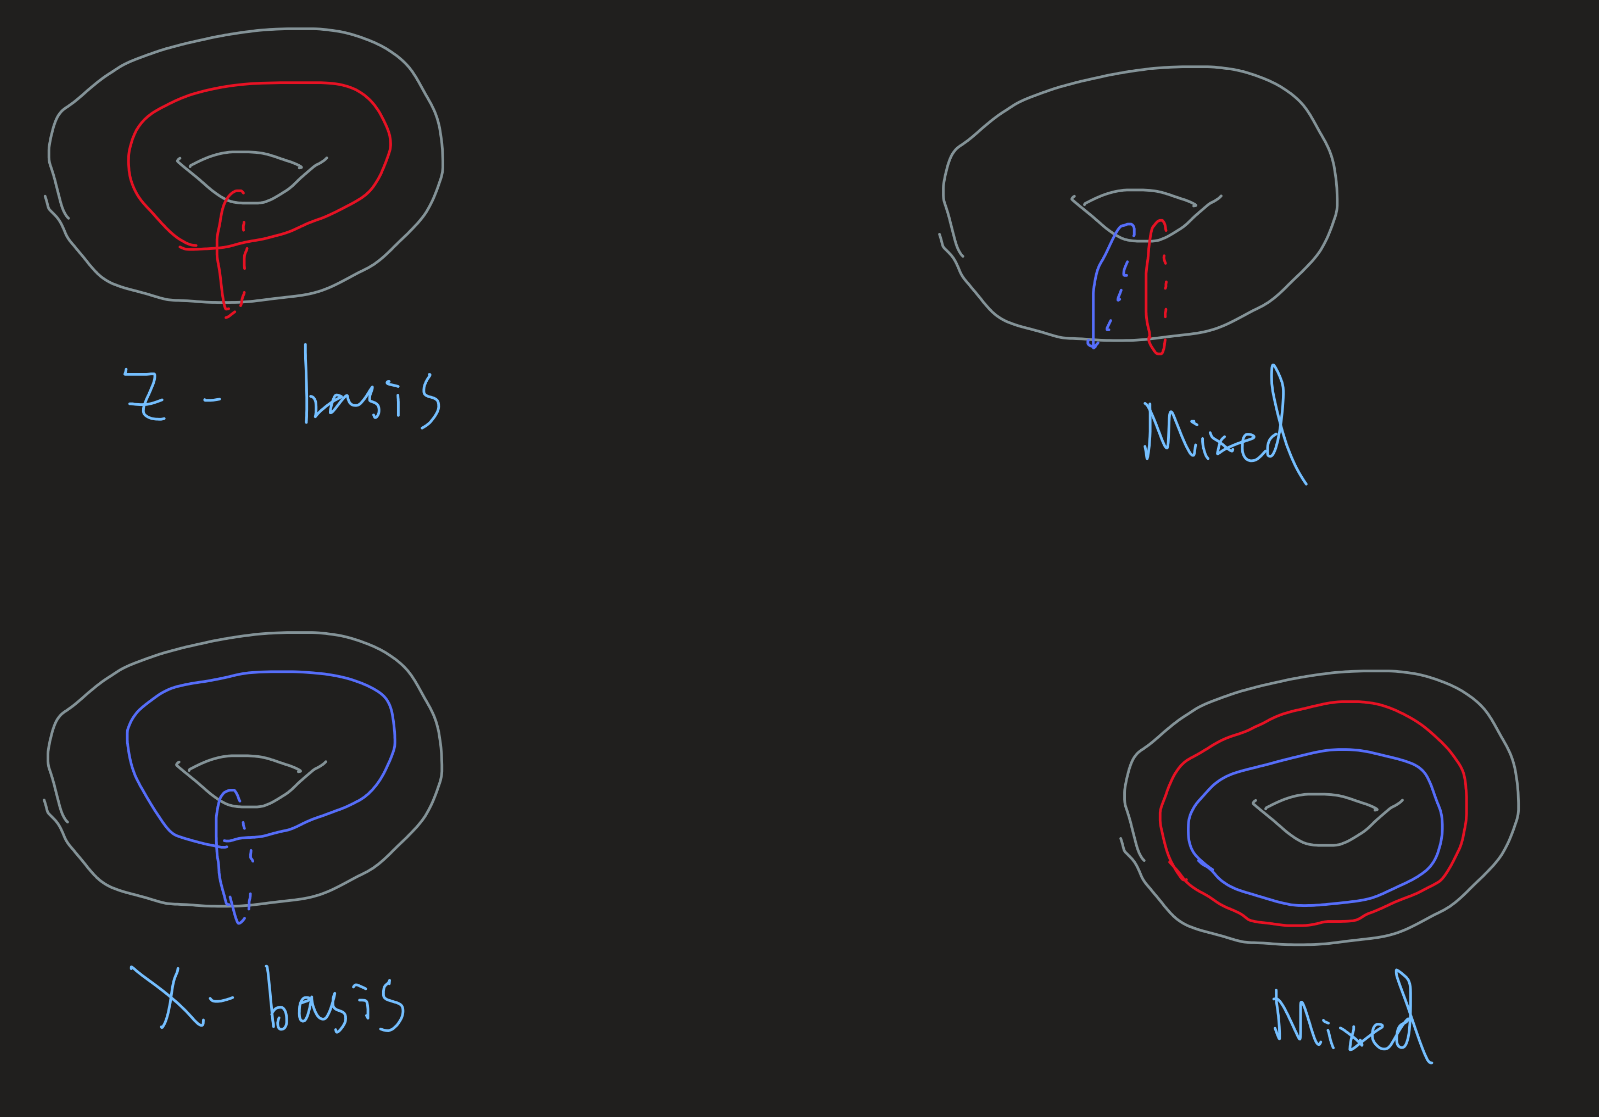 Z - basis
Mixed
X - basis
Mixed